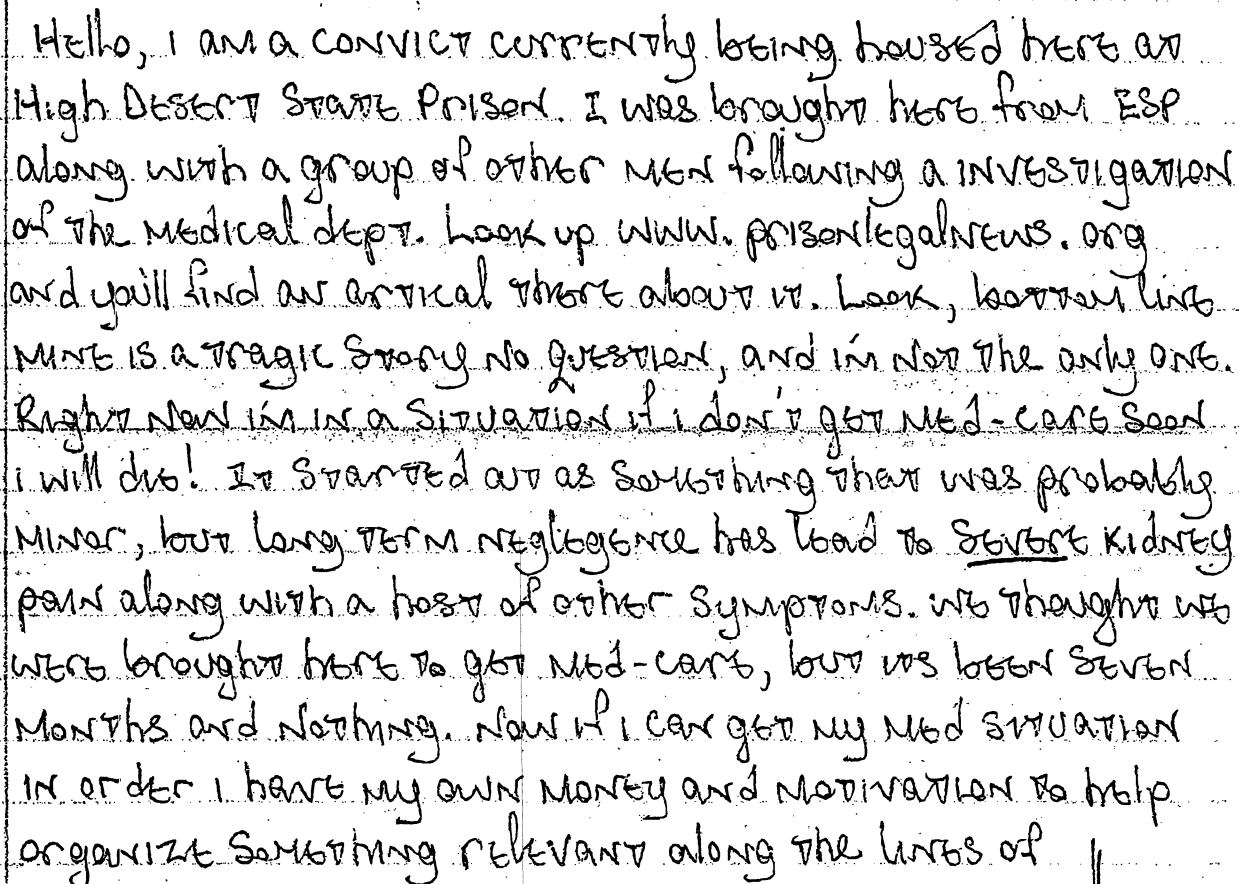 Hello, I am a convict currently being housed here at
High Desert State Prison. I was brought here from ESP
along with a group of other men following a investigation
of the medical dept. Look up www.prisonlegalnews.org
and you'll find an artical there about it. Look, bottom line
mine is a tragic story no question, and i'm not the only one.
Right now i'm in a situation if i don't get med-care soon
i will die! It started out as something that was probably
minor, but long term neglegence has lead to severe kidney
pain along with a host of other symptoms. We thought we
were brought here to get med-care, but its been seven
months and nothing. Now if i can get my med situation
in order i have my own money and motivation to help
organize something relevant along the lines of